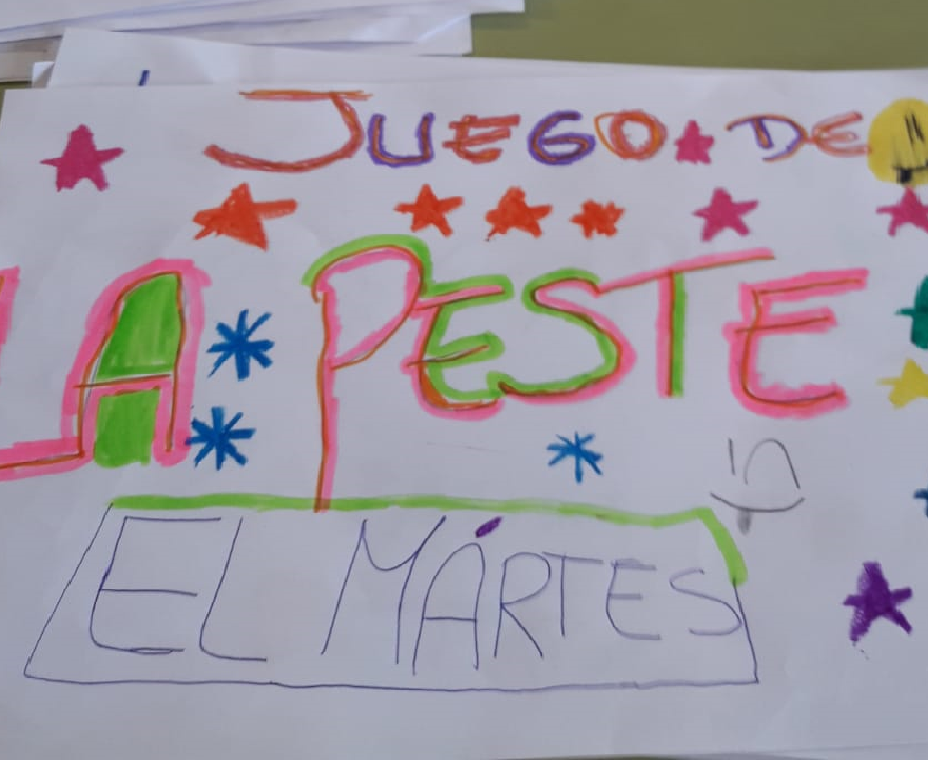 JUEGO DE
LA PESTE
EL MÁRTES